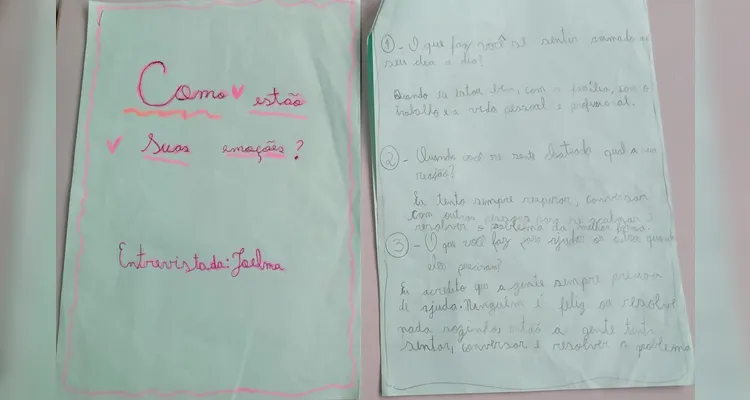 Como estão
Suas emoções?
Entrevistada: Joelma
1 - O que faz você se sentir amado no
seu dia a dia?
Quando eu estou bem, com a família, com o
trabalho e a vida pessoal e profissional.
2 - Quando você se sente chateado qual a sua
reação?
Eu tento sempre respirar, conversar
com outras pessoas para se acalmar e
resolver o problema da melhor forma.
3 - O que você faz para ajudar os outros quando
eles precisam?
Eu acredito que a gente sempre precisa
de ajuda. Ninguém é feliz ou resolve
nada sozinho, então a gente tenta
sentar, conversar e resolver o problema